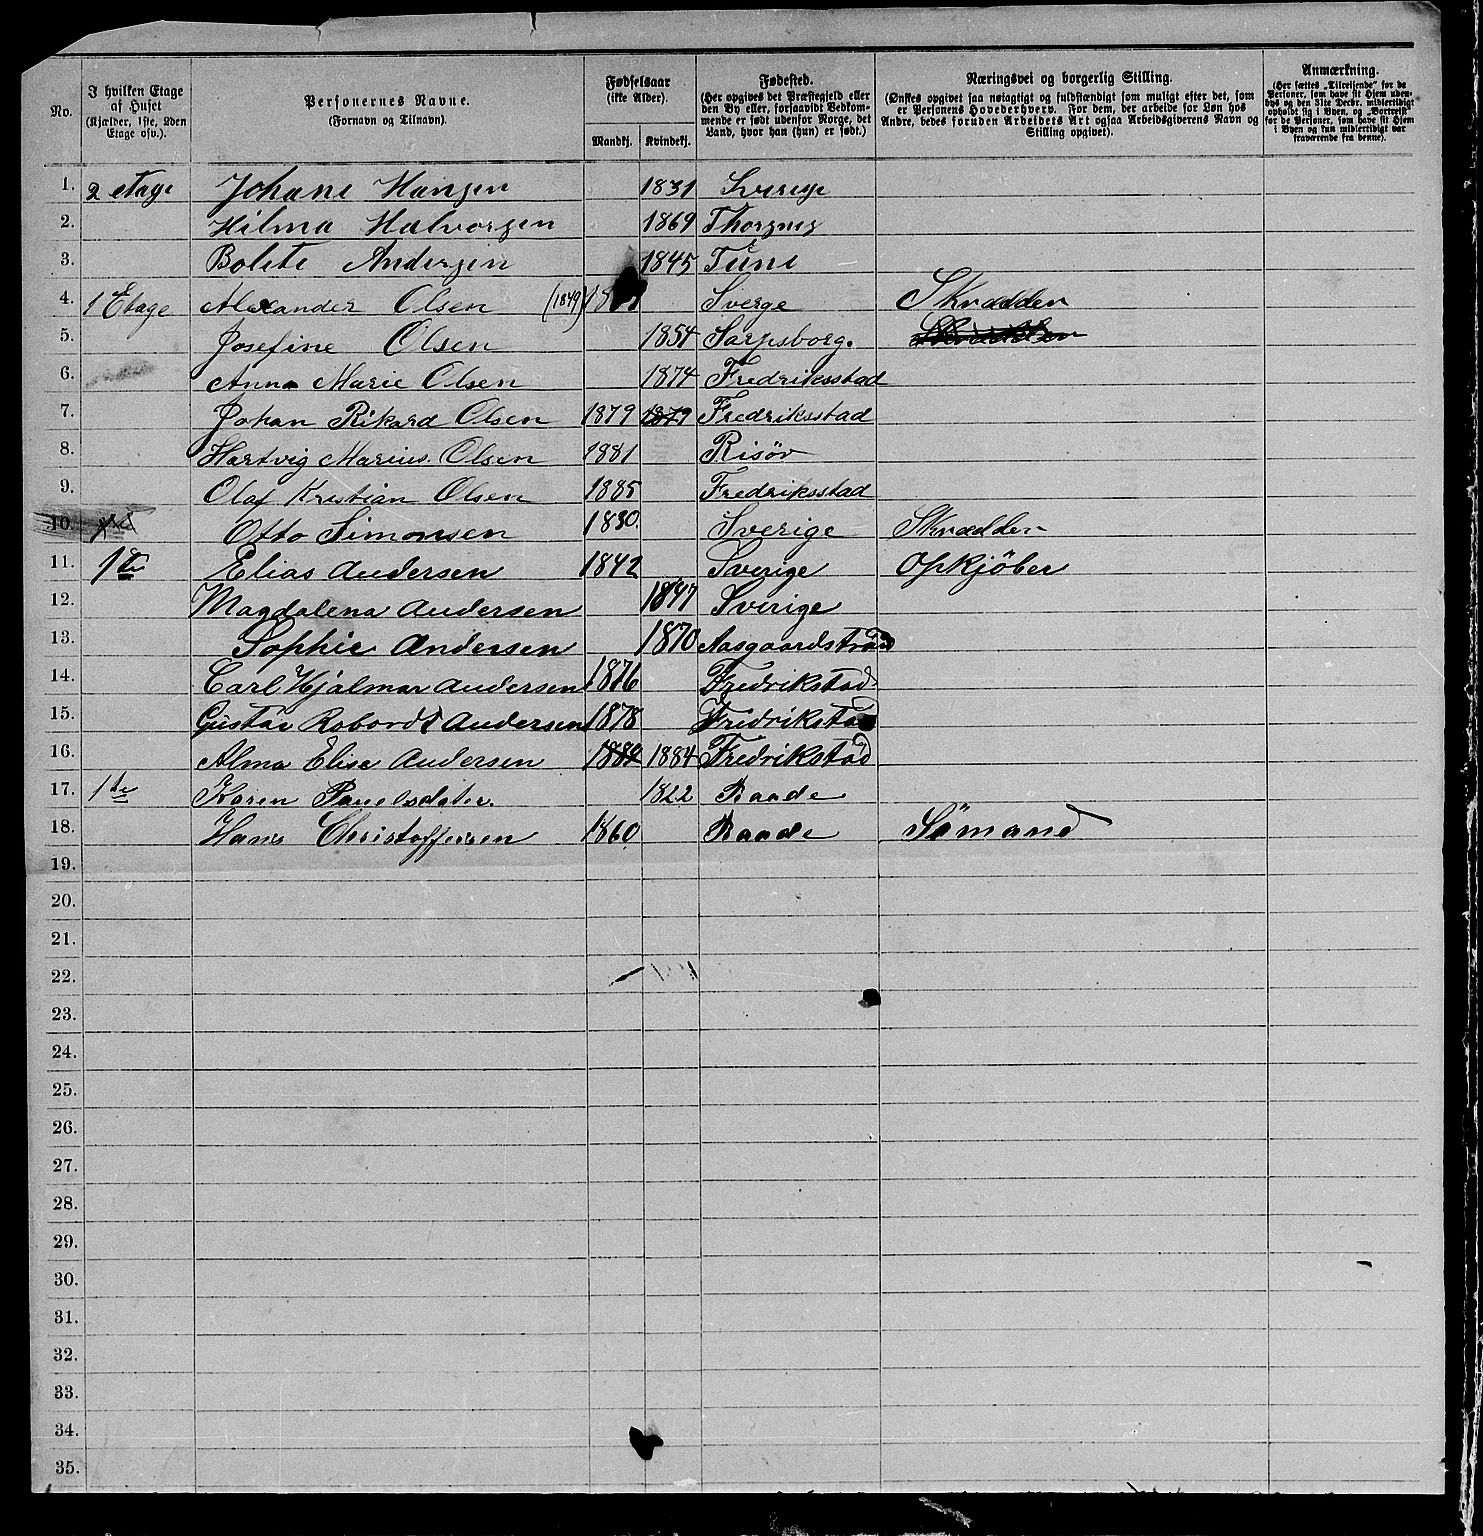 No.
I hvilken Etage
af Huset
(Kjælder, 1ste, 2den
Etage osv.).
Personernes Navne.
(Fornavn og Tilnavn).
Fødselsaar
(ikke Alder).
Mandkj. Kvindekj.
Fødested.
(Her opgives det Præstegjeld eller
den By eller, forsaavidt Vedkom-
mende er født udenfor Norge, det
Land, hvor han (hun) er født.)
Næringsvei og borgerlig Stilling.
(Ønskes opgivet saa nøiagtigt og fuldstændigt som muligt efter det, som
er Personens Hovederhverv. For dem, der arbeide for Løn hos
Andre, bedes foruden Arbeidets Art ogsaa Arbeidsgiverens Navn og
Stilling opgivet).
Anmærkning.
(Her sættes „Tilreisende" for de
Personer, som have sit Hjem uden-
bys og den 31te Decbr. midlertidigt
opholdt sig i Byen, og „Bortreist"
for de Personer, som have sit Hjem
i Byen og kun midlertidigt var
fraværende fra denne).
1. 2 etage Johane Hansen 1831 Sverige
2. Hilma Halvorsen 1869 Thorsnes
3. Bolete Andersen 1845 Tune
4. 1 Etage Alexander Olsen (1849) Sverge Skrædder
5. Josefine Olsen 1854 Sarpsborg.
6. Anna Marie Olsen 1874 Fredriksstad
7. Johan Rikard Olsen 1879 1879 Fredriksstad
8. Hartvig Marius Olsen 1881 Risör
9. Olaf Kristian Olsen 1885 Fredriksstad
10. Otto Simonsen 1830. Sverige Skrædder
11. 1te Elias Andersen 1842 Sverige Opkjöber
12. Magdalena Andersen 1847 Sverige
13. Sophie Andersen 1870 Aasgaardstrand
14. Carl Hjalmar Andersen 1876 Fredrikstad
15. Gustav Robordt Andersen 1878 Fredrikstad
16. Alma Elise Andersen 1884 1884 Fredrikstad
17. 1te Karen Paulsdater. 1822 Raade
18. Hans Christoffersen 1860 Raade Sömand
19.
20.
21.
22.
23.
24.
25.
26.
27.
28.
29.
30.
31.
32.
33.
34.
35.